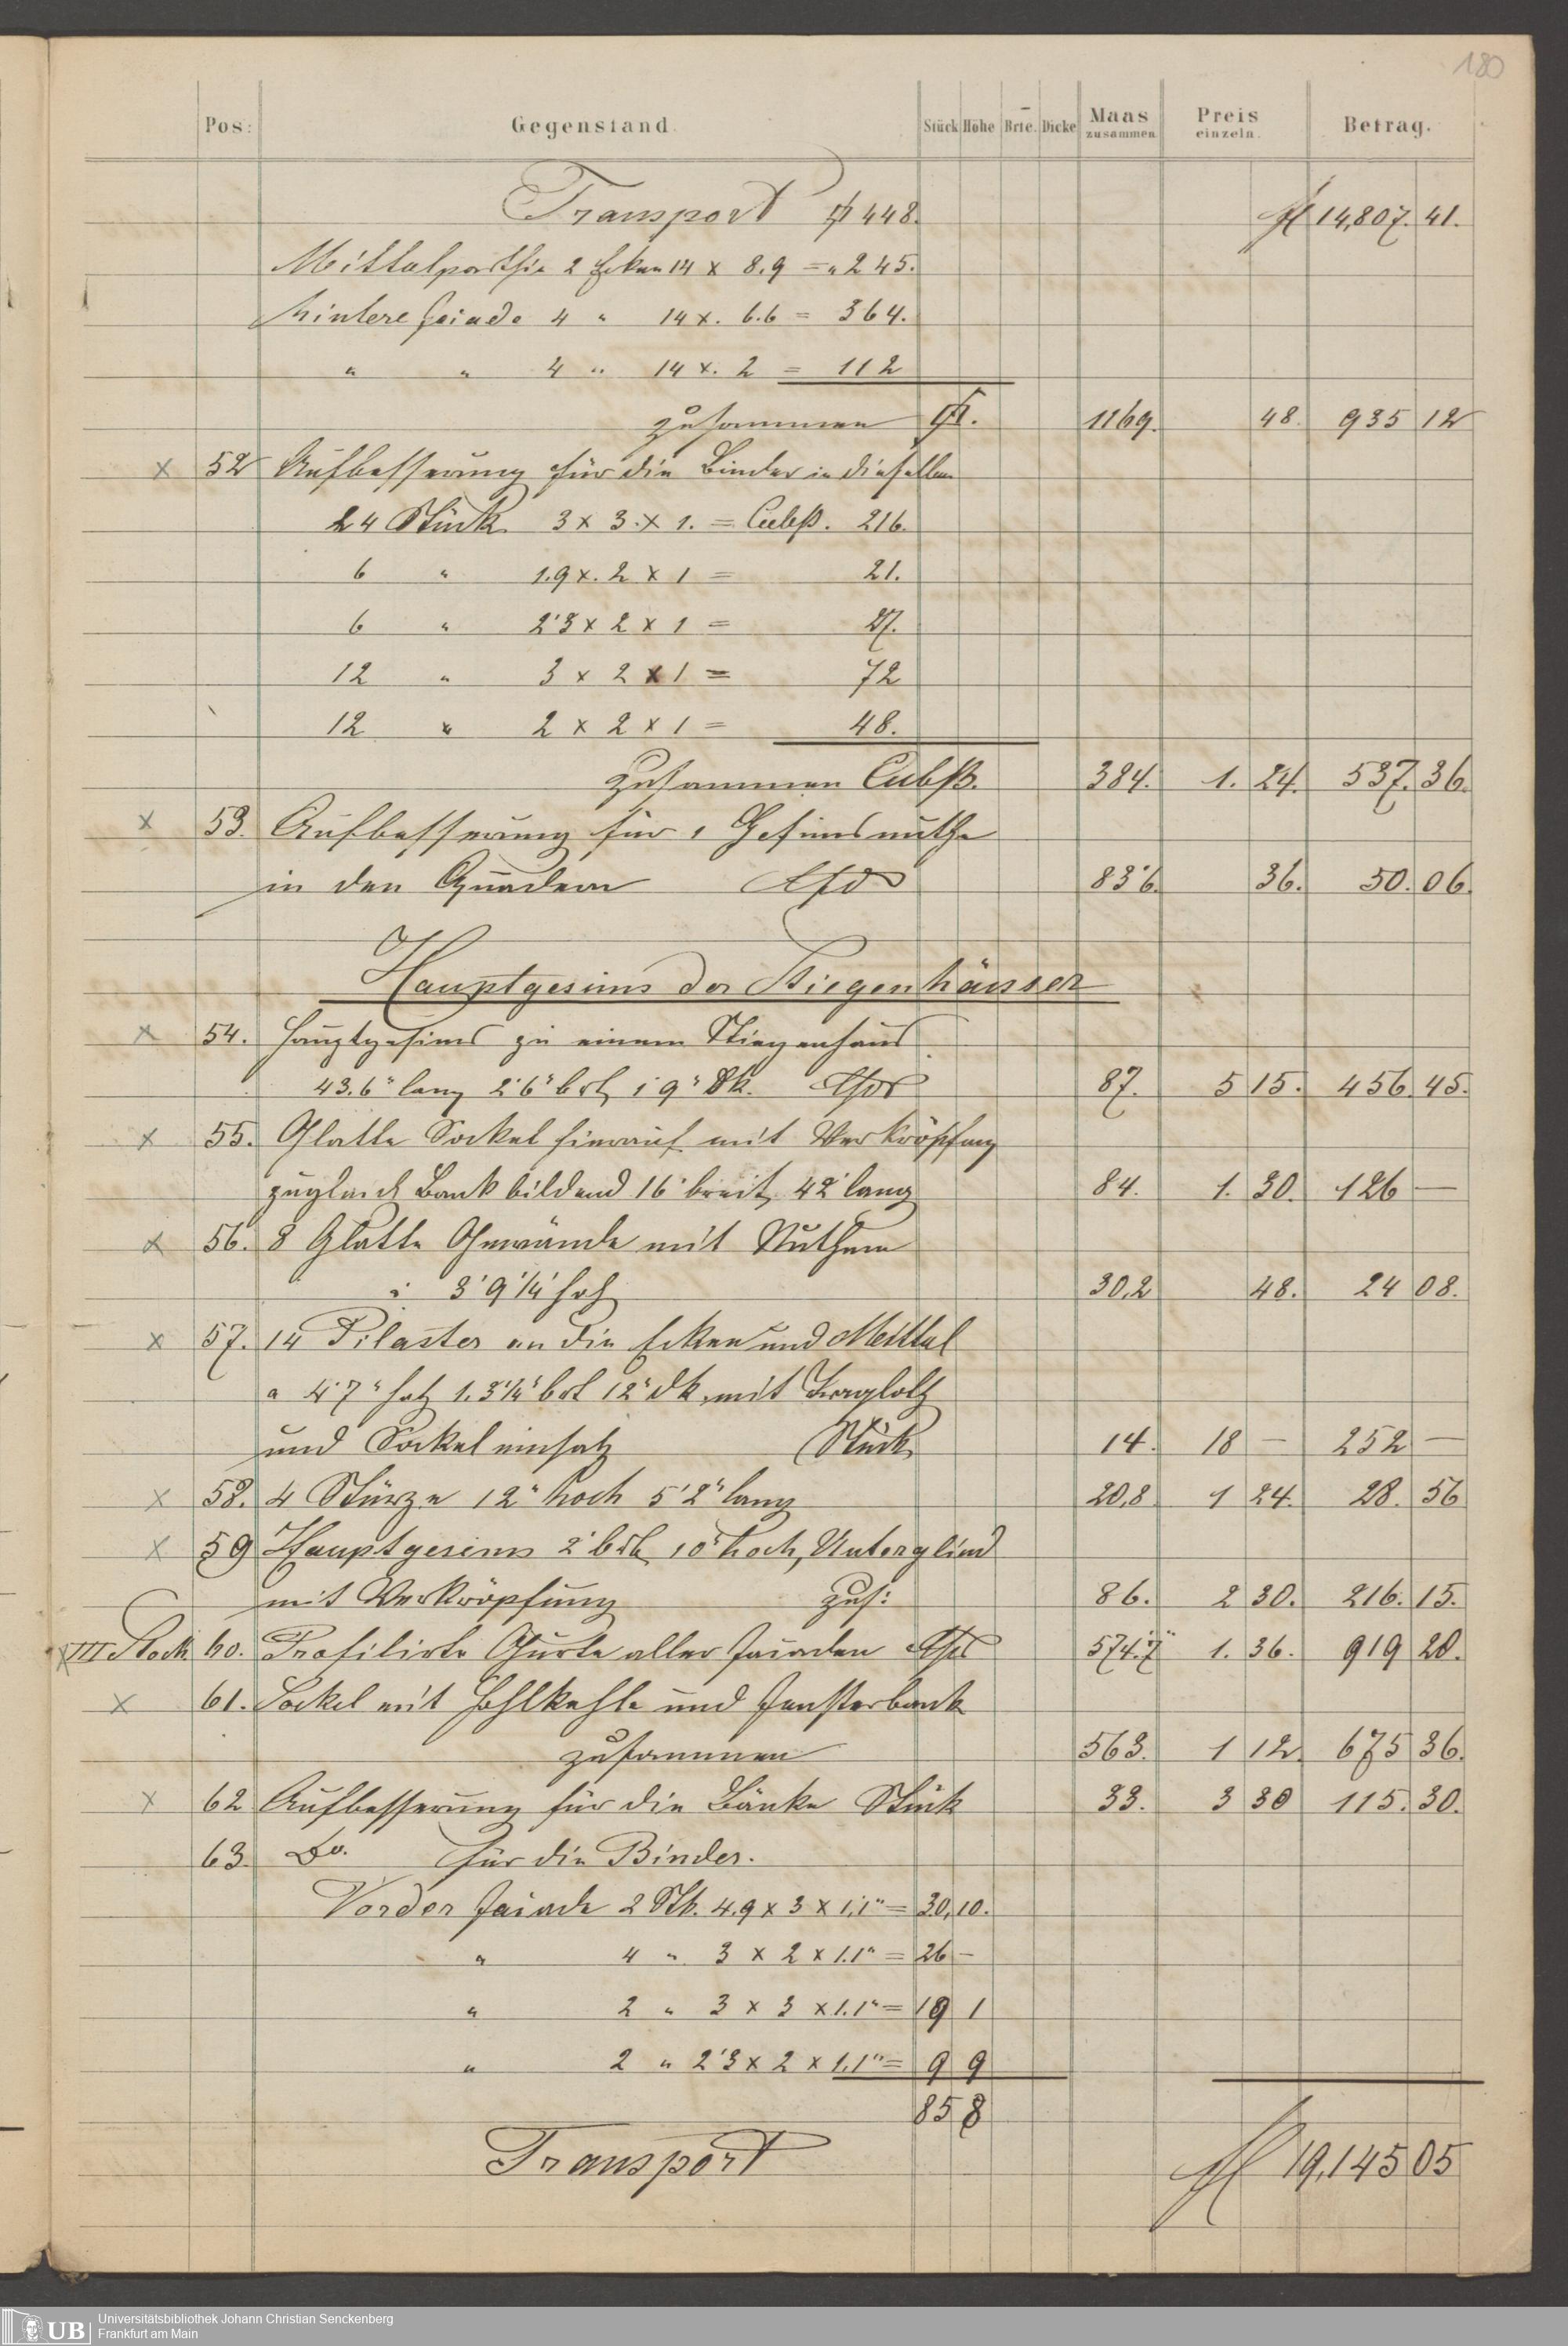 180
Pos: Gegenstand. Stück Höhe Brte. Dicke Maas zusammen Preis einzeln. Betrag.
Transport 448. fl 14,807. 41.
Mittelparthie 2 Ecken 14 x 8.9 = " 245.
hintere Façade 4 " 14 x. 6.6 = 364.
" " 4 " 14 x. 2 = 112
zusammen 1169. 48. 935 12
x 52 Aufbesserung für die Binder in dieselben
24 Stück 3 x 3. x 1. = Cubß. 216.
6 " 1.9 x. 2 x 1 = 21.
6 " 2'3 x 2 x 1 = 27.
12 " 3 x 2 x 1 = 72
12 " 2 x 2 x 1 = 48.
zusammen Cubß. 384. 1. 24. 537. 36.
x 53. Aufbesserung für 1 Gesimsnuthe
in den Quadern lfd 83'6. 36. 50. 06.
Hauptgesims der Stiegenhäuser
x 54. Hauptgesims zu einem Stiegenhaus
43.6" lang 2'6" brt, 1'9" Dk. lfds 87. 5 15. 456. 45.
x 55. Glatte Sockel hierauf mit Verkröpfung
zugleich Bank bildend 16" breit, 42' lang 84. 1. 30. 126 —
x 56. 8 Glatte Gewände mit Nuthen
à 3'9 1/4" hoch 30,2 48. 24 08.
x 57. 14 Pilaster an die Ecken und Mittel
a 4'7" hoch 1.3 1/4" brt 12" dk. mit
und Sockeleinsatz Stück 14. 18 — 252 —
x 58. 4 Stürze 12" hoch 5'2" lang 20,8 1 24. 28. 56
x 59 Hauptgesims 2' brt, 10" hoch, Unterglied
mit Verkröpfung zus: 86. 2 30. 216. 15.
x III Stock 60. Profilirte Gurte aller Façaden lfds 574.'7" 1. 36. 919 20.
x 61. Sockel mit Hohlkehle und Fensterbank
zusammen 563. 1 12. 675 36.
x 62 Aufbesserung für die Bänke Stück 33. 3 30 115. 30.
63. Do. für die Binder.
Vorder Façade 2 Stk. 4.9 x 3 x 1.1" = 30,10.
" 4 " 3 x 2 x 1.1" = 26 —
" 2 " 3 x 3 x 1.1" = 19 1
" 2 " 2'3 x 2 x 1.1" = 9 9
85 8
Transport fl 19,145 05
UB Universitätsbibliothek Johann Christian Senckenberg
Frankfurt am Main